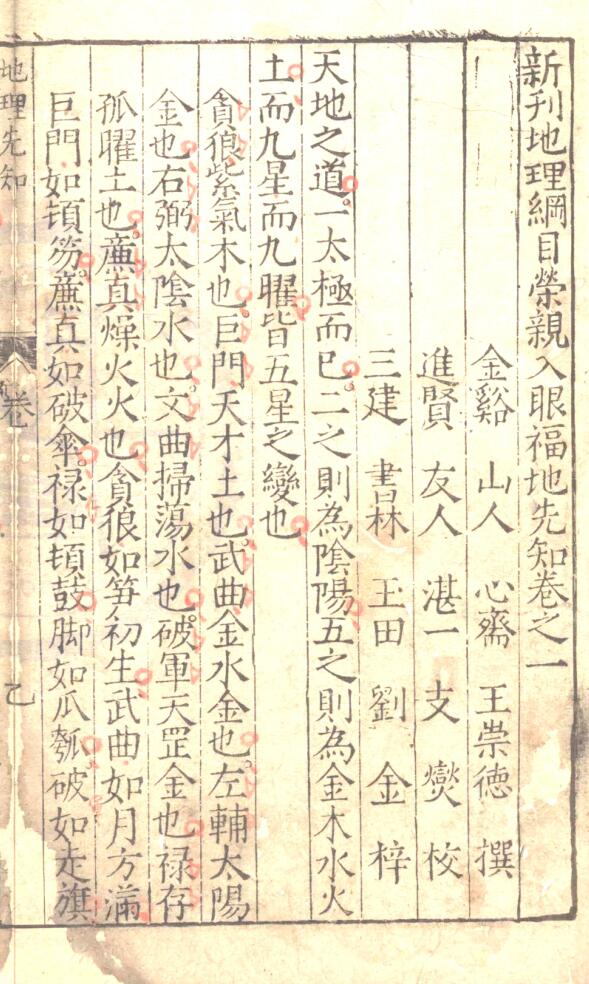 新刊地理綱目榮親入眼福地先知卷之一
金谿 山人 心齋 王崇德 撰
進賢 友人 湛一 支爕 校
三建 書林 玉田 劉金 梓
天地之道一太極而已二之則為陰陽五之則為金木水火
土而九星而九曜皆五星之變也
貪狼紫氣木也巨門天才土也武曲金水金也左輔太陽
金也右弼太陰水也文曲掃蕩水也破軍天罡金也祿存
孤曜土也廉真燥火火也貪狼如笋初生武曲如月方滿
巨門如頓笏廉真如破傘祿如頓鼓脚如瓜瓠破如走旗
地理先知
卷
乙